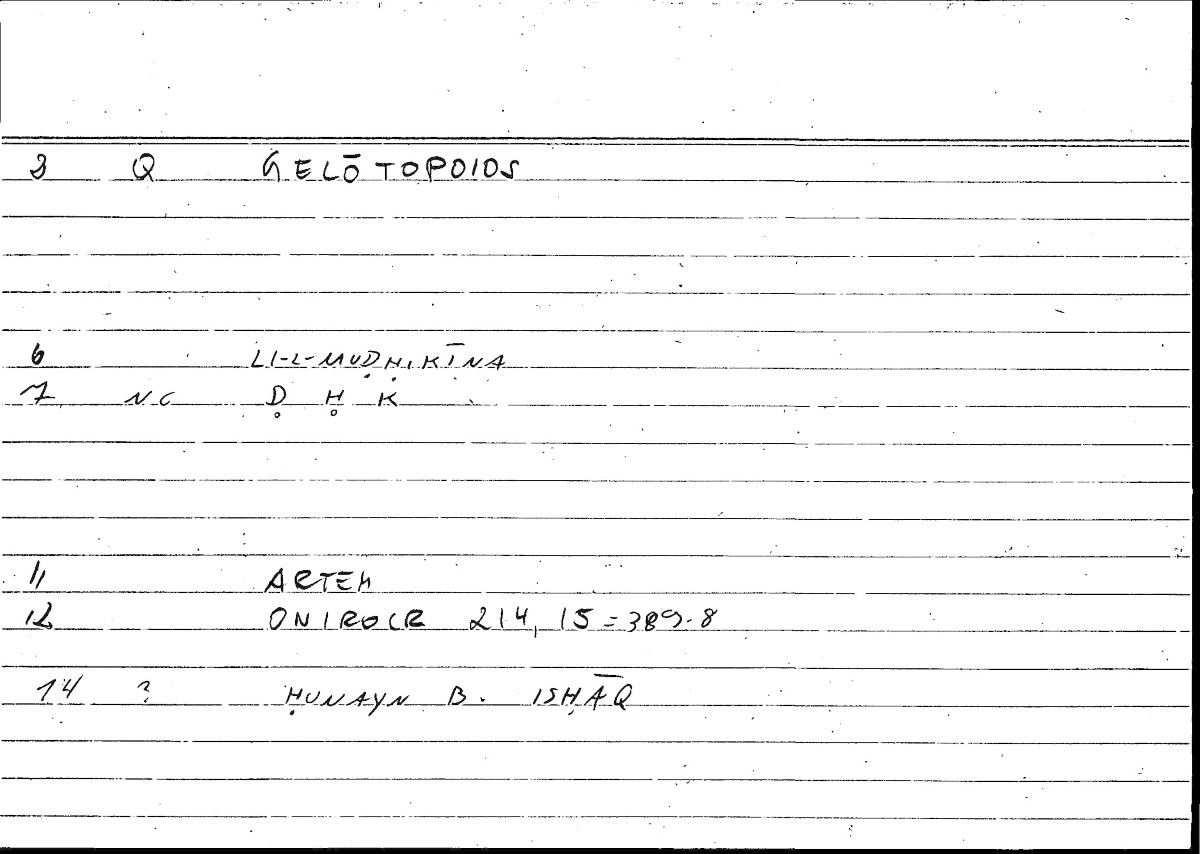 3 Q GELŌTOPOIOS
6 LI-L-MUḌḤIKĪNA
7 NC Ḍ Ḥ K
11 ARTEM
12 ONIROCR 214, 15 = 389.8
14 ? ḤUNAYN B. ISḤĀQ